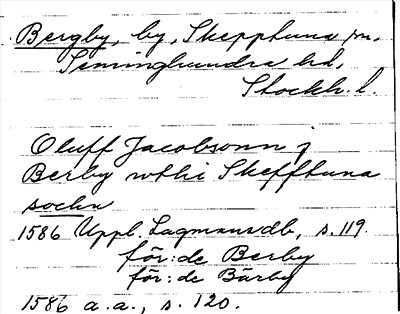 Bergby, by, Skepptuna sn,
Seminghundra hd,
Stockh. l.
Oluff Jacobsonn j
Berby wthi Skefftuna
sochn
1586 Uppl. Lagmansdb, s. 119.
för: de Berby
för: de Bärby
1586 a.a., s. 120.